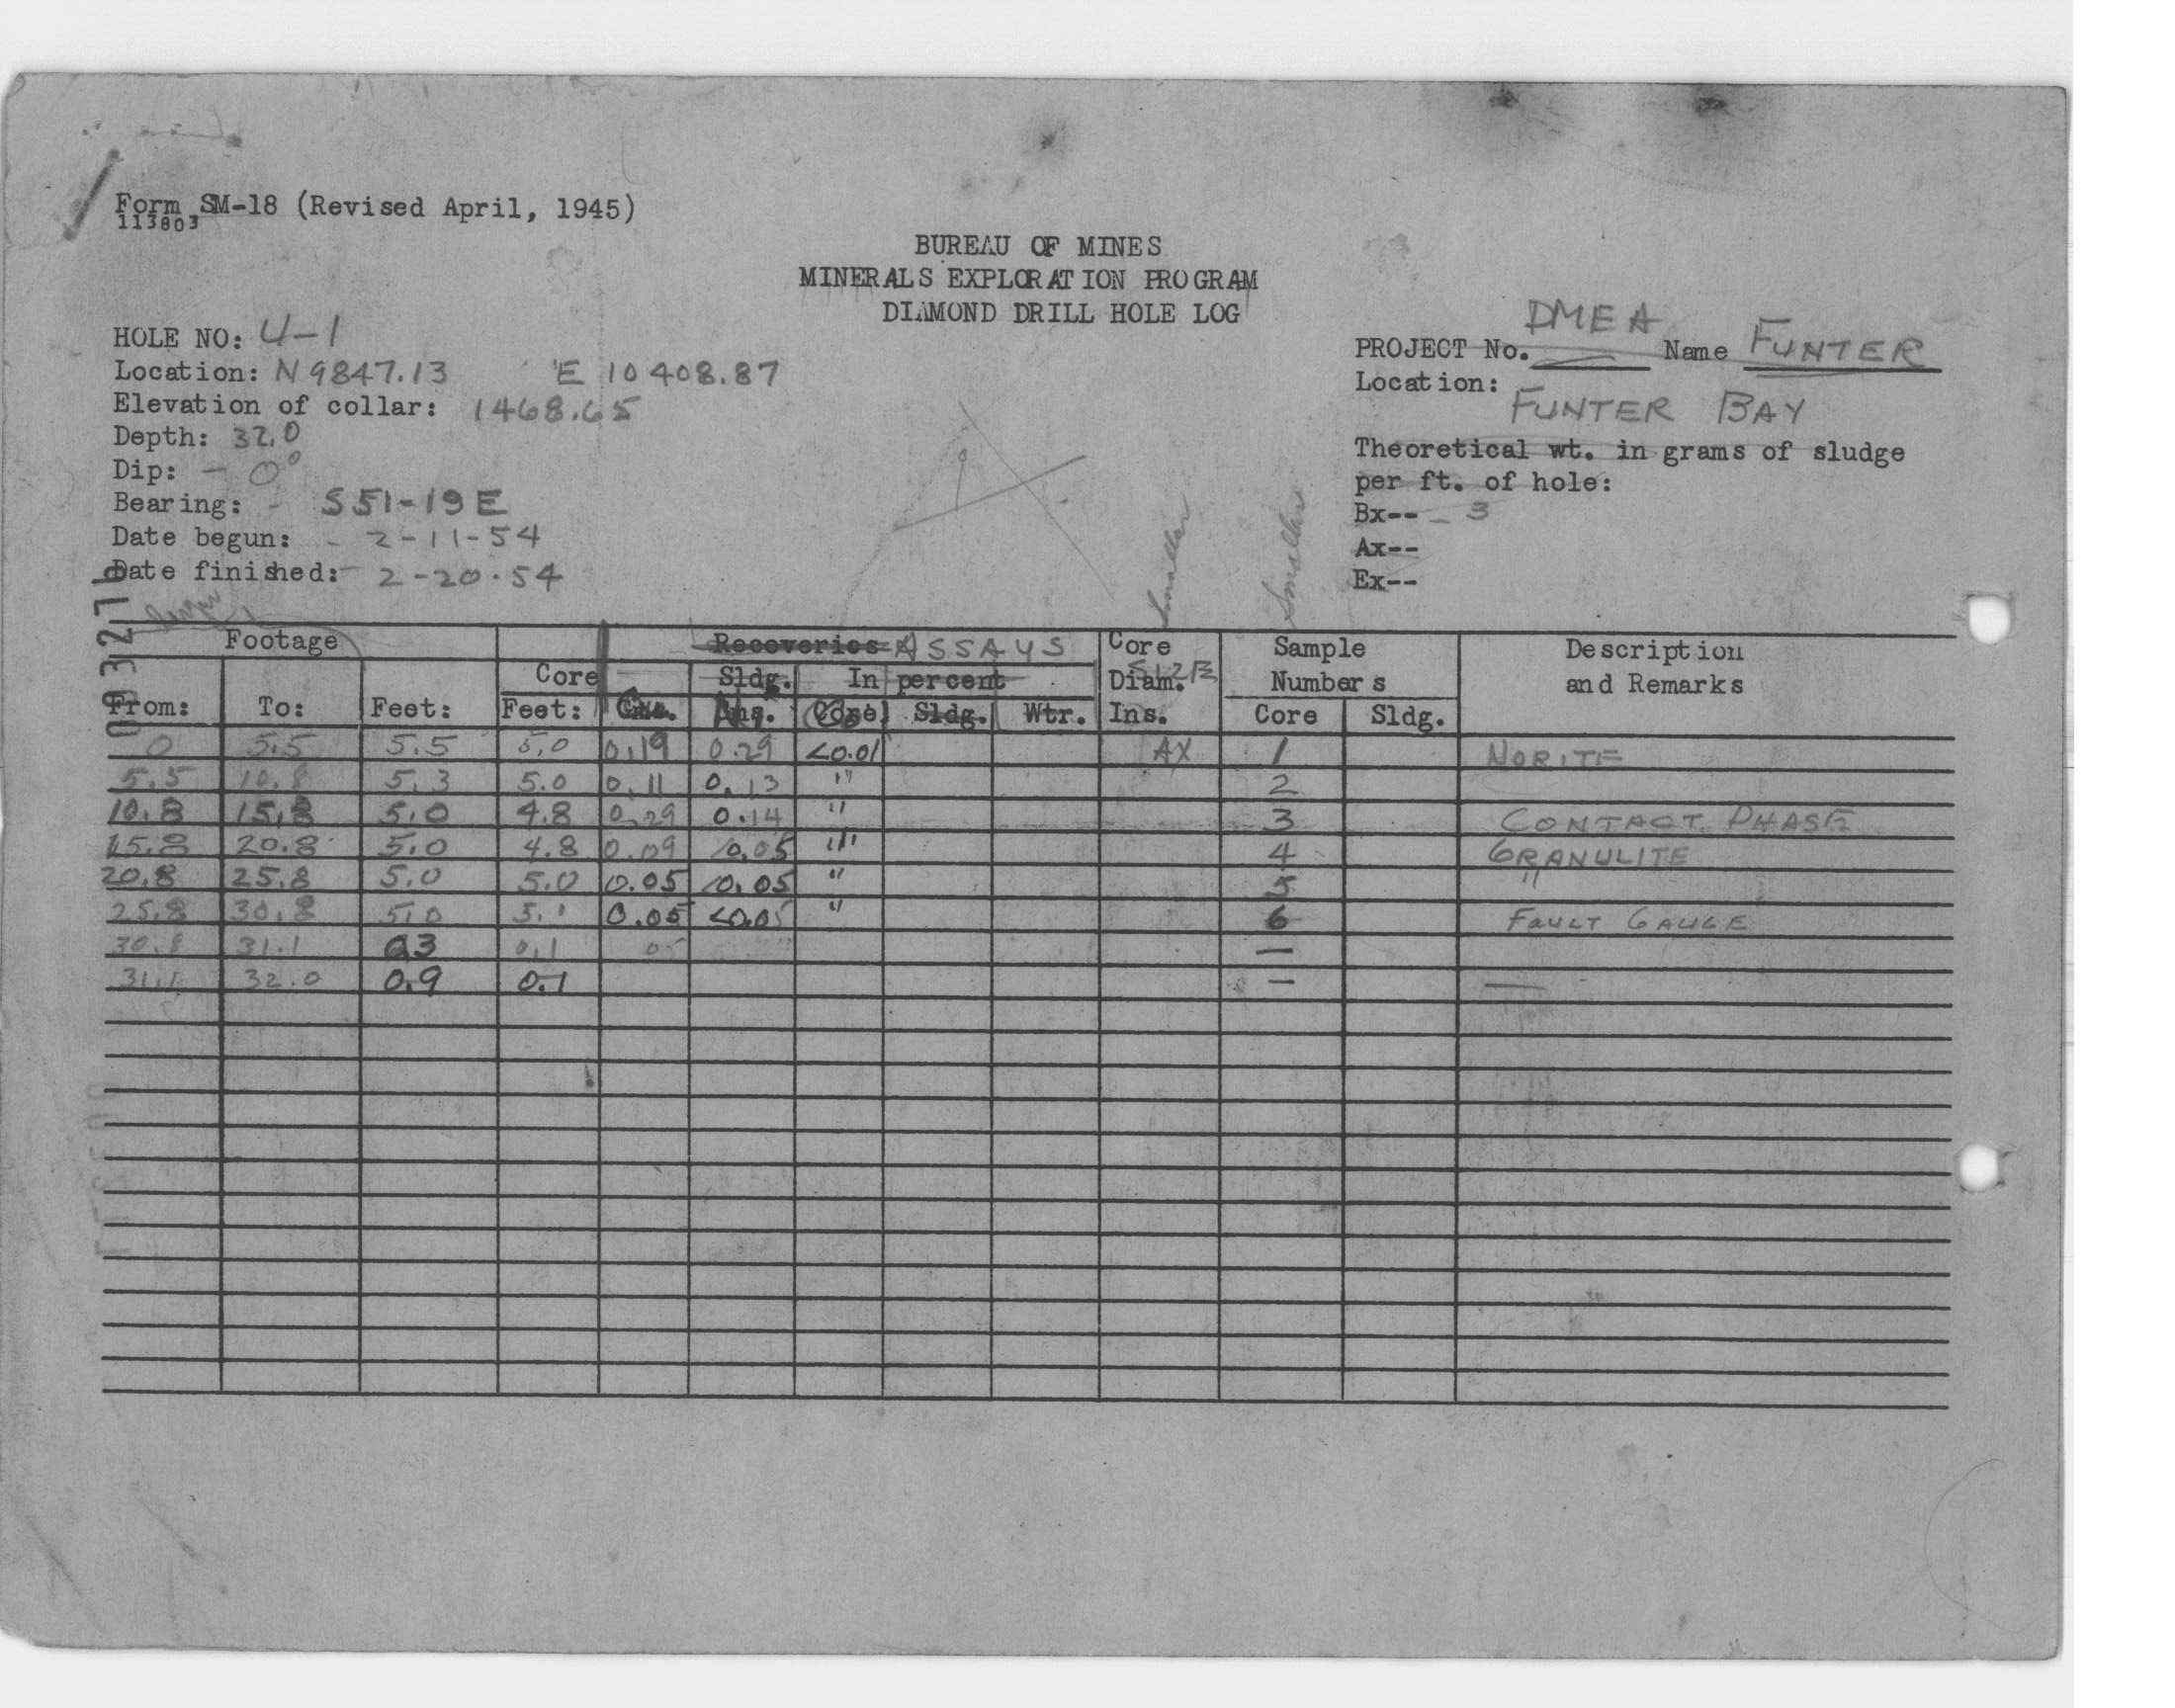 Form SM-18 (Revised April, 1945)
113803
BUREAU OF MINES
MINERALS EXPLORATION PROGRAM
DIAMOND DRILL HOLE LOG
HOLE NO: U-1
Location: N 9847.13 E 10408.87
Elevation of collar: 1468.65
Depth: 32.0
Dip: - 0°
Bearing: - S51-19E
Date begun: - 2-11-54
Date finished: - 2-20-54
DMEA
PROJECT No. Name FUNTER
Location:
FUNTER BAY
Theoretical wt. in grams of sludge
per ft. of hole:
Bx-- - 3
Ax--
Ex--
Smaller
Smaller
Footage Recoveries ASSAYS Core Sample Description
Core Sldg. In percent Diam. SIZE Numbers and Remarks
From: To: Feet: Feet: Cu Ins. Ni Ins. Co Core Sldg. Wtr. Ins. Core Sldg.
0 5.5 5.5 5.0 0.19 0.29 <0.01 AX 1 NORITE
5.5 10.8 5.3 5.0 0.11 0.13 " 2
10.8 15.8 5.0 4.8 0.29 0.14 " 3 CONTACT PHASE
15.8 20.8 5.0 4.8 0.09 0.05 " 4 GRANULITE
20.8 25.8 5.0 5.0 0.05 0.05 " 5 "
25.8 30.8 5.0 0.05 <0.05 " 6 FAULT GAUGE
30.8 31.1 0.3 0.1 —
31.1 32.0 0.9 0.1 — —